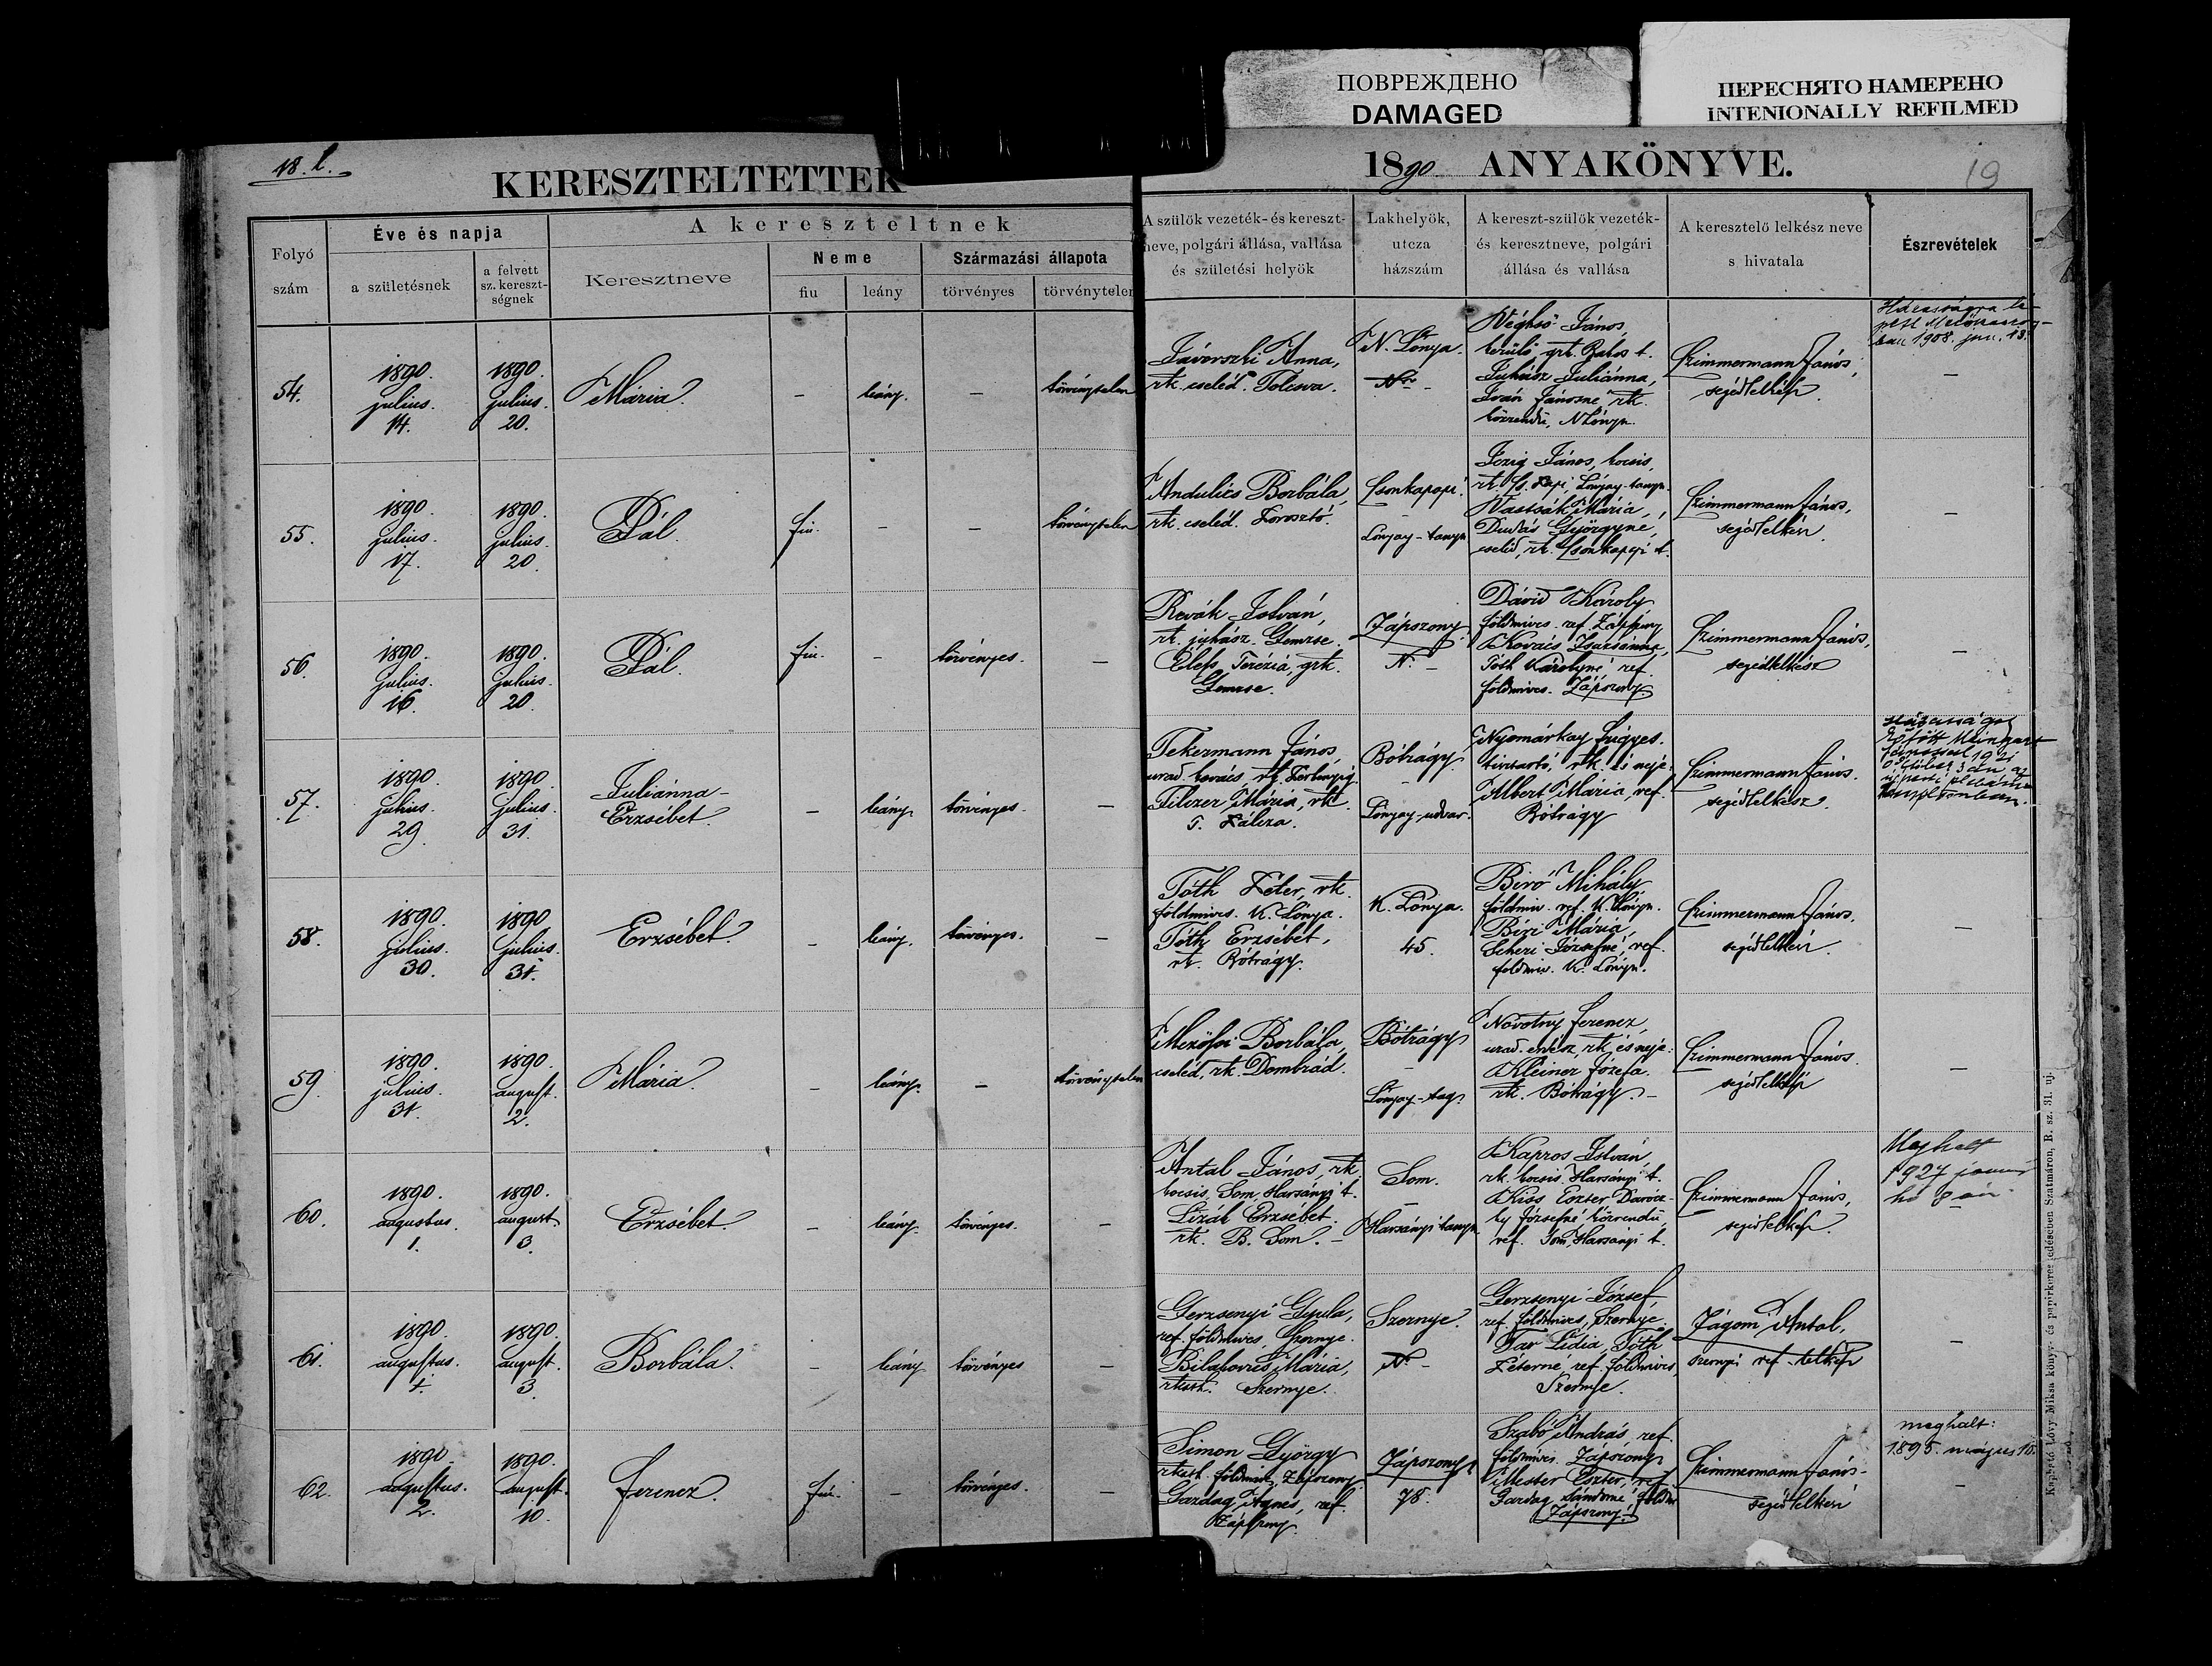 ПОВРЕЖДЕНО
DAMAGED
ПЕРЕСНЯТО НАМЕРЕНО
INTENIONALLY REFILMED
18. l.
KERESZTELTETTEK
1890 ANYAKÖNYVE.
19
Folyó szám
Éve és napja
a születésnek
a felvett sz. kereszt-ségnek
A kereszteltnek
Keresztneve
Neme
fiu
leány
Származási állapota
törvényes
törvénytelen
A szülők vezeték- és kereszt-
neve, polgári állása, vallása
és születési helyök
Lakhelyök,
utcza
házszám
A kereszt-szülők vezeték-
és keresztneve, polgári
állása és vallása
A keresztelő lelkész neve
s hivatala
Észrevételek
54.
1890. julius. 14.
1890. julius. 20.
Mária.
–
leány.
–
törvénytelen
Jávorszki Anna,
rk. cseléd. Tolcsva.
N. Lónya.
Nr. –
Véghső János,
kerülő, grk. Bakos t.
Juhász Juliánna,
Iván Jánosné rk.
közrendű, N Lónya.
Szimmermann János,
segédlelkész.
1908. jun. 13.
–
55.
1890. julius. 17.
1890. julius. 20.
Pál.
fiu.
–
–
törvénytelen
Andulics Borbála,
rk. cseléd.
Csonkapapi.
–
Lónyay-tanya
János, kocsis,
rk. Cs. Papi, Lónyay-tanya.
Mária,
Dudás Györgyné,
cseléd, rk. Csonkapapi t.
Szimmermann János,
segédlelkész.
–
56.
1890. julius. 16.
1890. julius. 20.
Pál.
fiu.
–
törvényes.
–
Revák István,
rk. juhász. Gemzse.
Elek Terézia, grk.
Gemzse.
Zápszony.
N. –
Dávid Károly
földmives. ref. Zápszony
Kovács Zsuzsánna,
Tóth Károlyné ref.
földmives. Zápszony
Szimmermann János,
segédlelkész
–
57.
1890. julius. 29.
1890. julius. 31.
Juliánna-
Erzsébet.
–
leány.
törvényes.
–
Tekermann János,
urad. kovács rk.
Filczer Mária, rk.
T. Pálcza.
Bótrágy.
–
Lónyay-udvar.
Nyomárkay Frigyes.
tiszttartó, rk. és neje:
Albert Mária, ref.
Bótrágy
Szimmermann János.
segédlelkész.
Házasságot
1921
58.
1890. julius. 30.
1890. julius. 31.
Erzsébet.
–
leány.
törvényes.
–
Tóth Péter, rk.
földmives. K. Lónya.
Tóth Erzsébet,
rk. Bótrágy.
K. Lónya.
45.
Biró Mihály
földmiv. ref. K. Lónya.
Biri Mária,
Scheri Józsefné, ref.
földmiv. K. Lónya.
Szimmermann János.
segédlelkész.
–
59.
1890. julius. 31.
1890. august. 2.
Mária.
–
leány.
–
törvénytelen
Mezőfoi Borbála,
cseléd, rk. Dombrád.
Bótrágy
–
Lónyay-tag.
Novotny Ferencz,
urad. erdész, rk. és neje:
Kleiner Józefa.
rk. Bótrágy. –
Szimmermann János.
segédlelkész
–
60.
1890. augustus. 1.
1890. august. 3.
Erzsébet.
–
leány.
törvényes.
–
Antal János, rk.
kocsis, Som, Harsányi t.
Lizák Erzsébet.
rk. B. Som. –
Som.
–
Harsányi tanya
Kapros István,
rk. kocsis. Harsányi t.
Kiss Eszter Darócz-
ky Józsefné közrendű,
ref. Som, Harsányi t.
Szimmermann János,
segédlelkész.
Meghalt
1927 január
hó
61.
1890. augustus. 1.
1890. august. 3.
Borbála.
–
leány
törvényes
–
Gerzsenyi Gyula,
ref. földmives, Szernye.
Bilakovics Mária,
rkath. Szernye.
Szernye.
N. –
Gerzsenyi József
ref. földmives, Szernye.
Lidia, Tóth
Péterné ref. földmives,
Szernye.
Zágoni Antal,
szernyei ref. lelkész
–
62.
1890. augustus. 2.
1890. august. 10.
Ferencz.
fiu.
–
törvényes.
–
Simon György
rkath. földmives, Zápszony
Gazdag Ágnes, ref.
Zápszony.
Zápszony.
78.
Szabó András ref.
földmives. Zápszony
Mester Eszter, ref.
Gazdag Sándorné földm.
Zápszony.
Szimmermann János.
segédlelkész
meghalt:
1895. május 16.
–
Kapható Lővy Miksa könyv- és papirkereskedésében Szatmáron, R. sz. 31. uj.